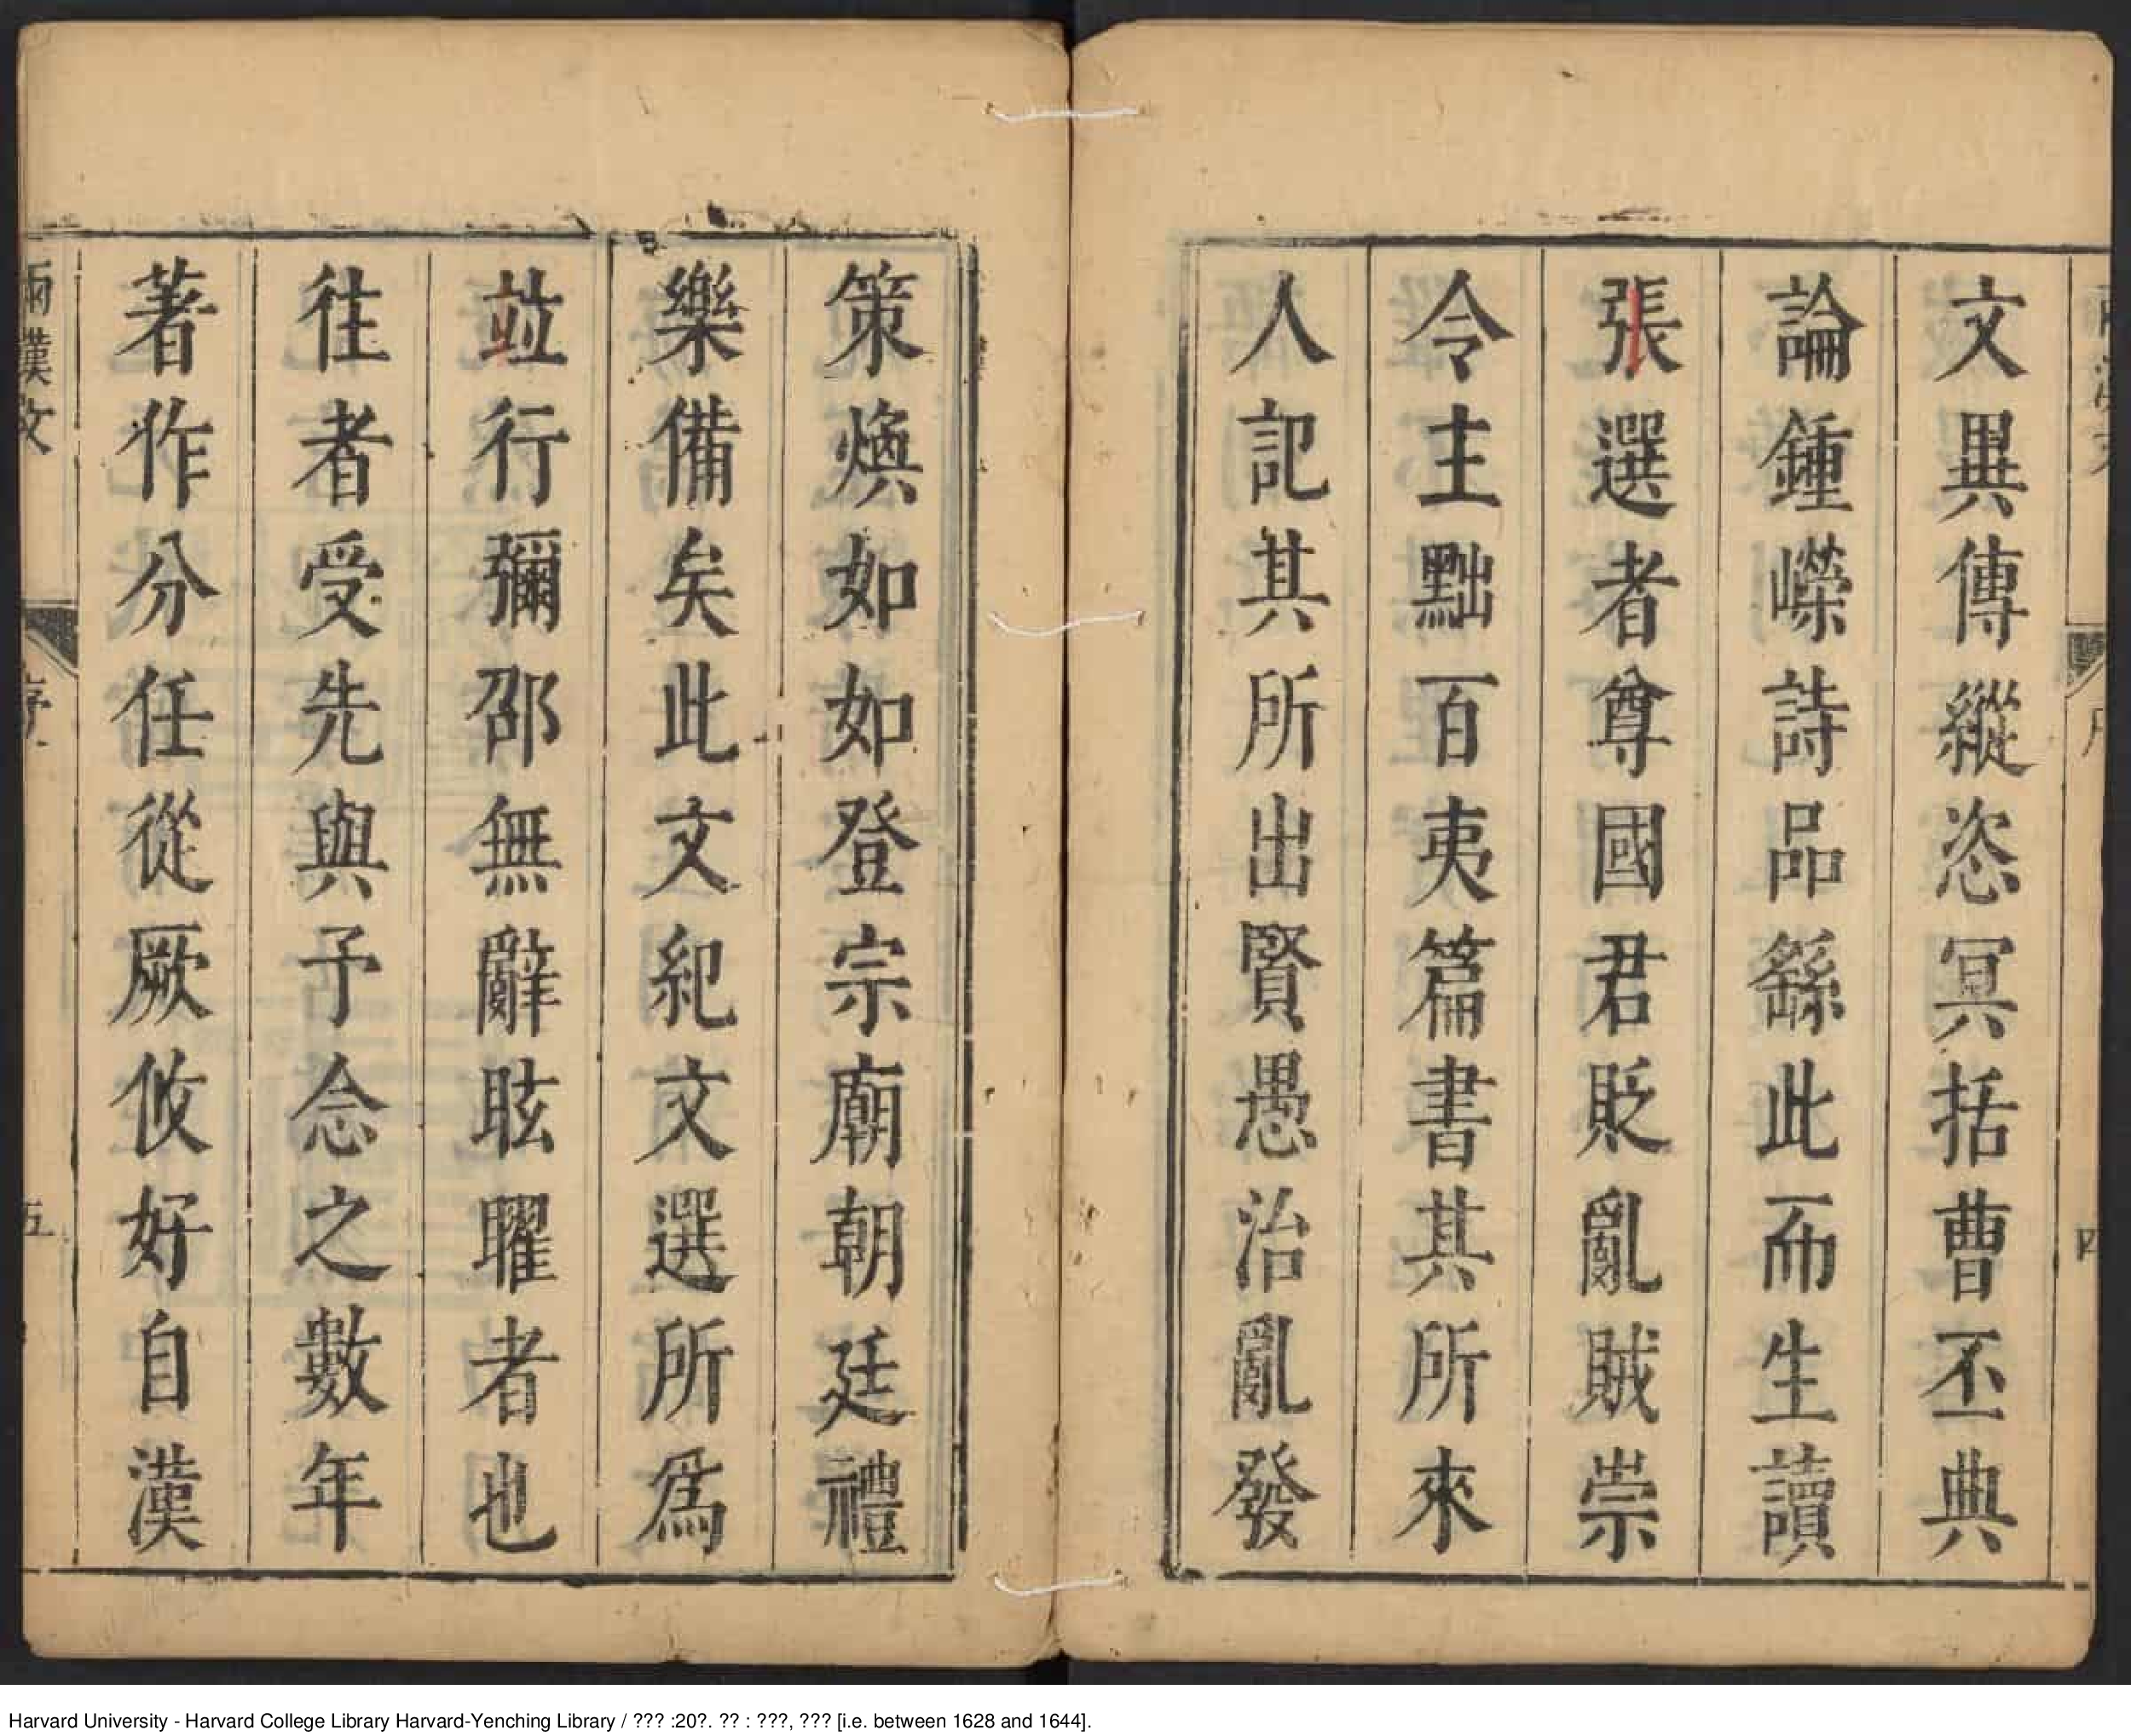 文異傳縱恣冥括曹丕典
論鍾嶸詩品繇此而生讀
張選者尊國君貶亂賊崇
令主黜百夷篇書其所來
人記其所出賢愚治亂發
策煥如如登宗廟朝廷禮
樂備矣此文紀文選所爲
竝行彌邵無辭眩曜者也
往者受先與予念之數年
著作分任從厥攸好自漢
兩漢文
序
五
Harvard University - Harvard College Library Harvard-Yenching Library / ??? :20?. ?? : ???, ??? [i.e. between 1628 and 1644].